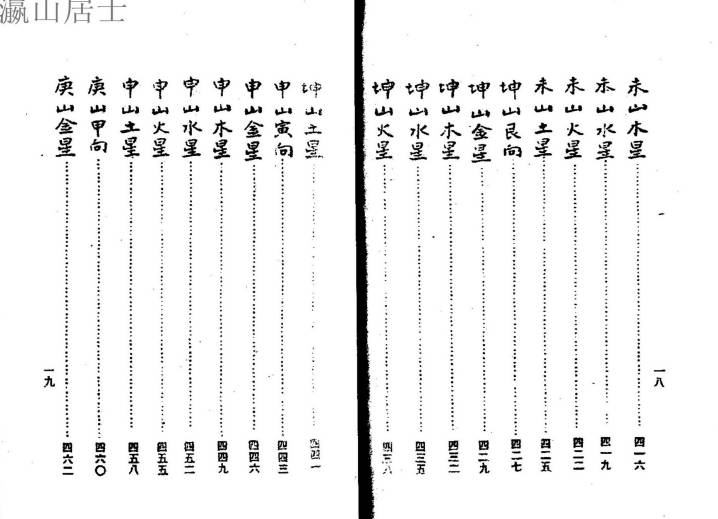 瀛山居士
未山木星 四一六
未山水星 四一九
未山火星 四二二
未山土星 四二五
坤山艮向 四二七
坤山金星 四二九
坤山木星 四三二
坤山水星 四三五
坤山火星 四三八
一八
坤山土星 四四一
申山寅向 四四三
申山金星 四四六
申山木星 四四九
申山水星 四五二
申山火星 四五五
申山土星 四五八
庚山甲向 四六〇
庚山金星 四六二
一九